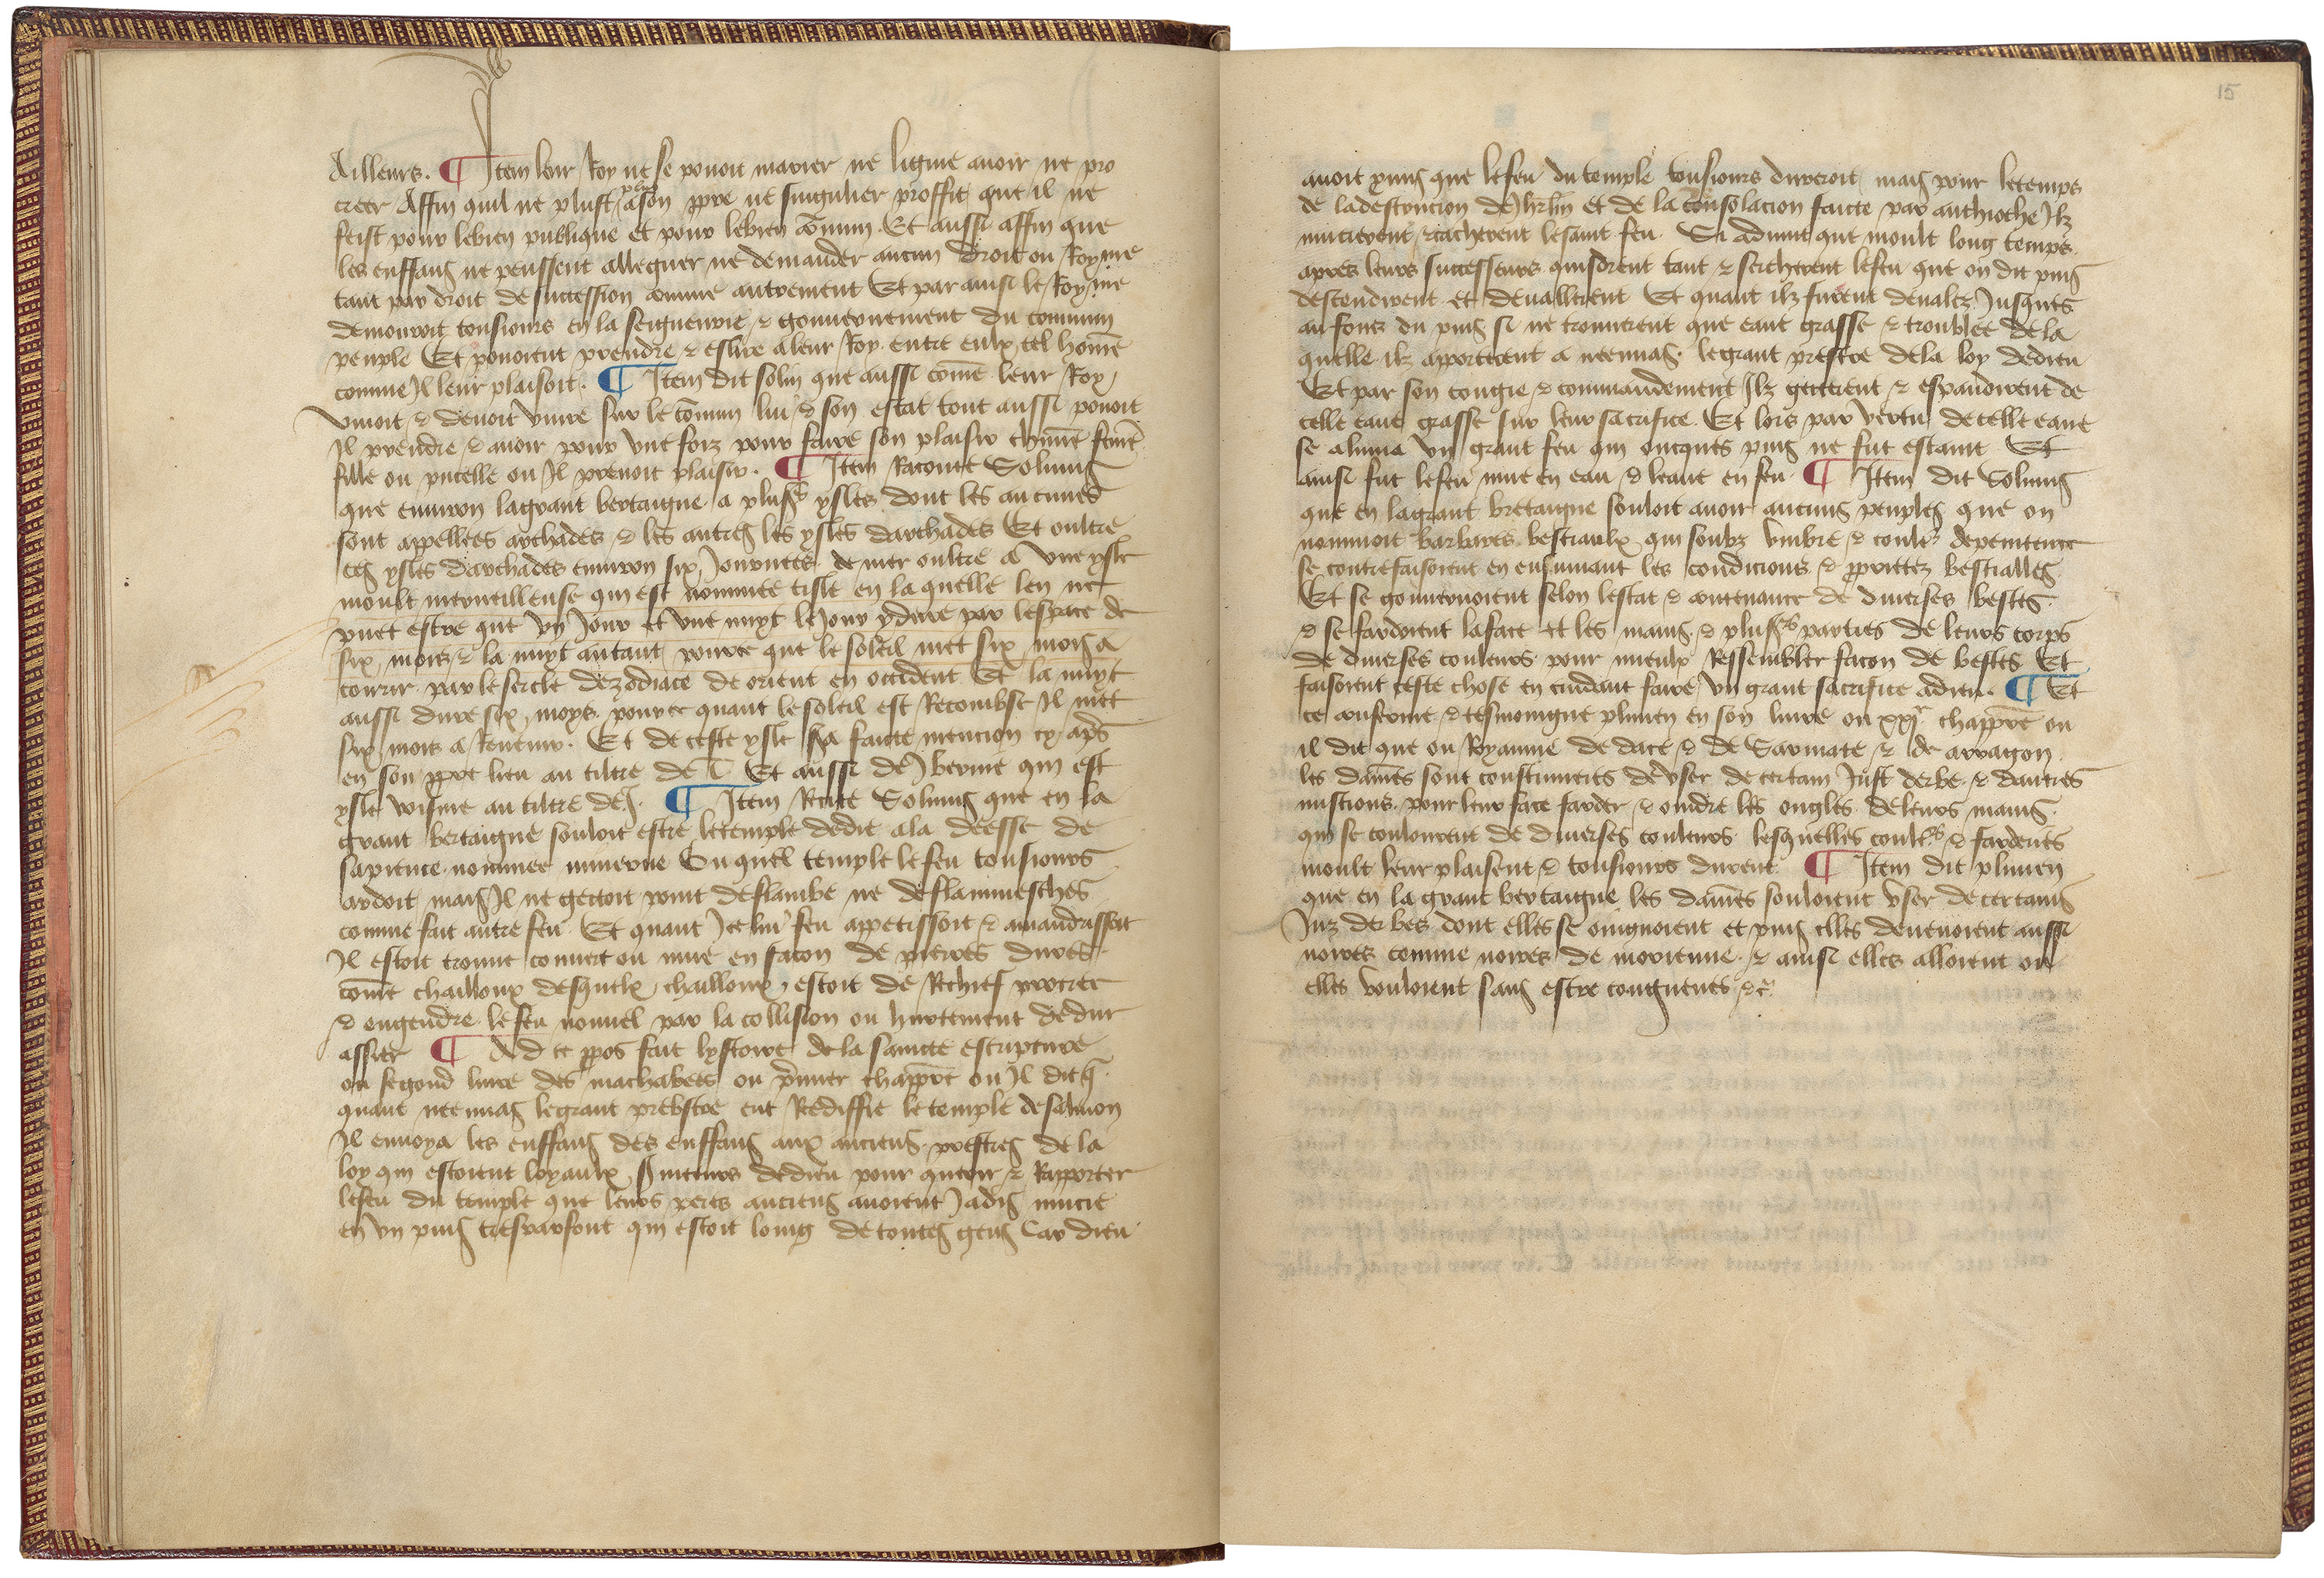 Ailleurs. ¶ Item leur Roy ne se pouoit marier ne lignie auoir ne pro
creer Affin quil ne plust plus a son ppre ne singulier proffit que il ne
feist pour lebien publique et pour lebien cōmun. Et aussi affin que
les enffans ne peussent alleguer ne demander aucun droit ou Royme
tant par droit de succession comme autrement Et par ainsi le Royme
demouroit tousiours en la seigneurie & gouuernement du commun
peuple Et pouoient prendre & eslire aleur Roy entre eulx tel homē
comme Il leur plaisoit. ¶ Item dit solin que aussi comē leur Roy
viuoit & deuoit viure sur le cōmun lui & son estat tout aussi pouoit
Il prendre & auoir pour vne foiz pour faire son plaisir chūne femē
fille ou pucelle ou Il prenoit plaisir. ¶ Item Raconte Solinus
que enuiron lagrant bertaigne a plusrs ysles dont les aucunes
sont appellees archades & les autres les ysles darchades Et oultre
ces ysles darchades enuiron six Journees de mer oultre a vne ysle
moult merueilleuse qui est nommee tisle en la quelle len ne
puet estre que vn Jour et vne nuyt le Jour y dure par lespace de
six mois & la nuyt autant pource que le soleil met six mois a
courir par le sercle dezodiace de orient en occident Et la nuyt
aussi dure six moys pource quant le soleil est Recombse Il met
six mois a Reuenir. Et de ceste ysle sera faicte mencion cy aps
en son ppre lieu au tiltre de T Et aussi de Jbernie qui est
ysle voisine au tiltre de J. ¶ Item Recite Solinus que en la
grant bertaigne souloit estre letemple dedie ala deesse de
sapience nommee minerue Ou quel temple lefeu tousiours
ardoit mais Il ne gectoit point deflambe ne deflammesches
comme fait autre feu Et quant Icelui feu appetissoit & amandrissoit
Il estoit trouue conuert ou mue en facon de pierres dures
comē chailloux desquelx chailloux estoit de Rechief procree
& engendre lefeu nouuel par la collision ou hurtement dedur
assier ¶ Ad ce ppos fait lystoire de la saincte escripture
ou segond liure des machabees ou p̄mier chappr̄e ou Il dit q̄
quant neemias legrant prebstre eut Rediffie letemple desalmon
Il enuoya les enffans des enffans aux anciens prestres de la
loy qui estoient loyaulx seruiteurs dedieu pour querir & Rapporter
lefeu du temple que leurs peres anciens auoient Jadis mucie
en vn puis tresparfont qui estoit loing de toutes gens Car dieu
15
auoit promis que lefeu du temple tousiours dureroit mais pour letemps
de ladestruction de Jhrlm et de la consolacion faicte par anthioche Ilz
mucierent & cacherent lesaint feu Si aduint que moult long temps
apres leurs successeurs quisdrent tant & sercherent lefeu que ou dit puis
descendirent et deuallerent Et quant ilz furent deualez Jusques
au fons du puis si ne trouuerent que eaue grasse & troublee de la
quelle ilz apporterent a neemias legrant prestre dela loy dedieu
Et par son congie & commandement Ilz gecterent & espandirent de
celle eaue grasse sur leur sacrifice Et lors par vertu de celle eaue
se aluma vn grant feu qui oncques puis ne fut estaint Et
ainsi fut lefeu mue en eau & leaue en feu ¶ Item dit Solinus
que en lagrant bretaigne souloit auoir aucuns peuples que on
nommoit barbares bestiaulx qui soubz vmbre & coulr depenitence
se contrefaisoient en ensuiuant les condicions & pprietez bestialles
Et se gouuernoient selon lestat & contenance de diuerses bestes
& se fardoient laface et les mains & plusrs parties de leurs corps
de diuerses couleurs pour mieulx Ressembler facon de bestes Et
faisoient ceste chose en cuidant faire vn grant sacrifice adieu. ¶ Et
ce conferme & tesmoingne plinien en son liure ou xxije chappr̄e ou
il dit que ou Royaume de dace & de Sarmate & de arragon
les dames sont coustumieres de vser de certain Just derbe & dautres
mistions pour leur face farder & oindre les ongles deleurs mains
qui se coulourent de diuerses couleurs lesquelles coulrs & fardents
moult leur plaisent & tousiours durent ¶ Item dit plinien
que en la grant bertaigne les dames souloient vser de certains
Juz derbes dont elles se oingnoient et puis elles deuenoient aussi
noires comme noires de morienne & ainsi elles alloient ou
elles vouloient sans estre congneues &c.